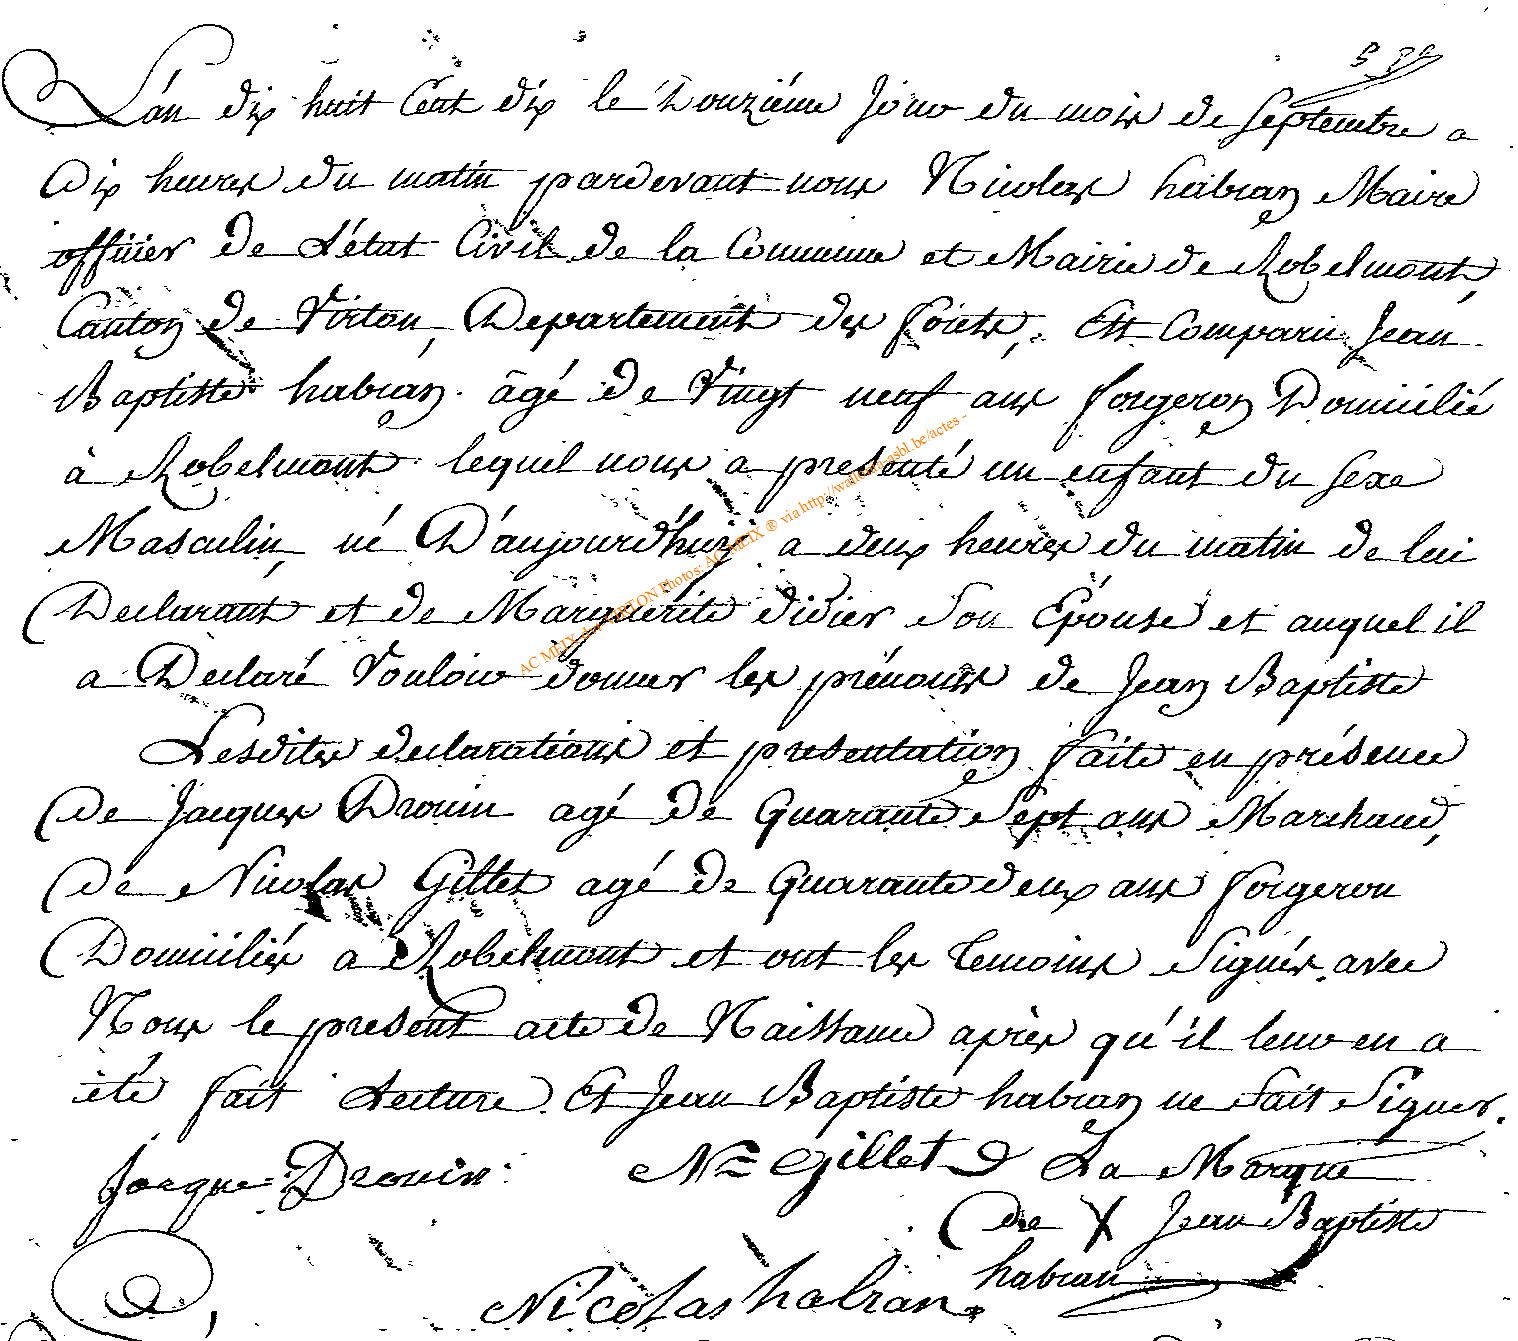 L'an dix huit Cent dix le Douziéme Jour du mois de Septembre a
Dix heures du matin pardevant nous Nicolas habran Maire
officier de L'état Civil de la Commune et Mairie de Robelmont,
Canton de Virton, Departement des forêts, Est Comparu Jean
Baptiste habran. âgé de Vingt neuf ans forgeron Domicilié
à Robelmont lequel nous a presenté un enfant du sexe
Masculin, né D'aujourd'huy a deux heures du matin de lui
Declarant et de Marguerite didier son Epouse et auquel il
a Declaré Vouloir donner les prénoms de Jean Baptiste
Lesdites declarations et presentation faite en présence
de Jacques Drouin agé de Quarante Sept ans Marchand,
de Nicolas Gillet agé de Quarante deux ans forgeron
Domiciliés a Robelmont et ont les temoins Signés avec
Nous le present acte de Naissance après qu'il leur en a
été fait Lecture. Et Jean Baptiste habran ne Sait Signer.
Jacque Drouin N= Gillet La Marque
de X Jean Baptiste
habran
Nicolas habran
AC MEIX-dvt-VIRTON Photos: AC MEIX ® via http://wallonia-asbl.be/actes -